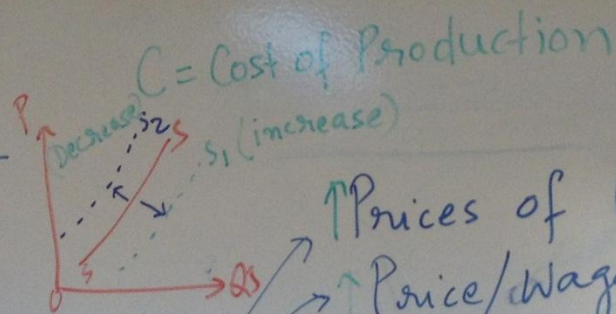 C = Cost of Production
P
(Decrease) S2 S
S1 (increase)
↑Prices of
S
O QS
↑Price/Wag